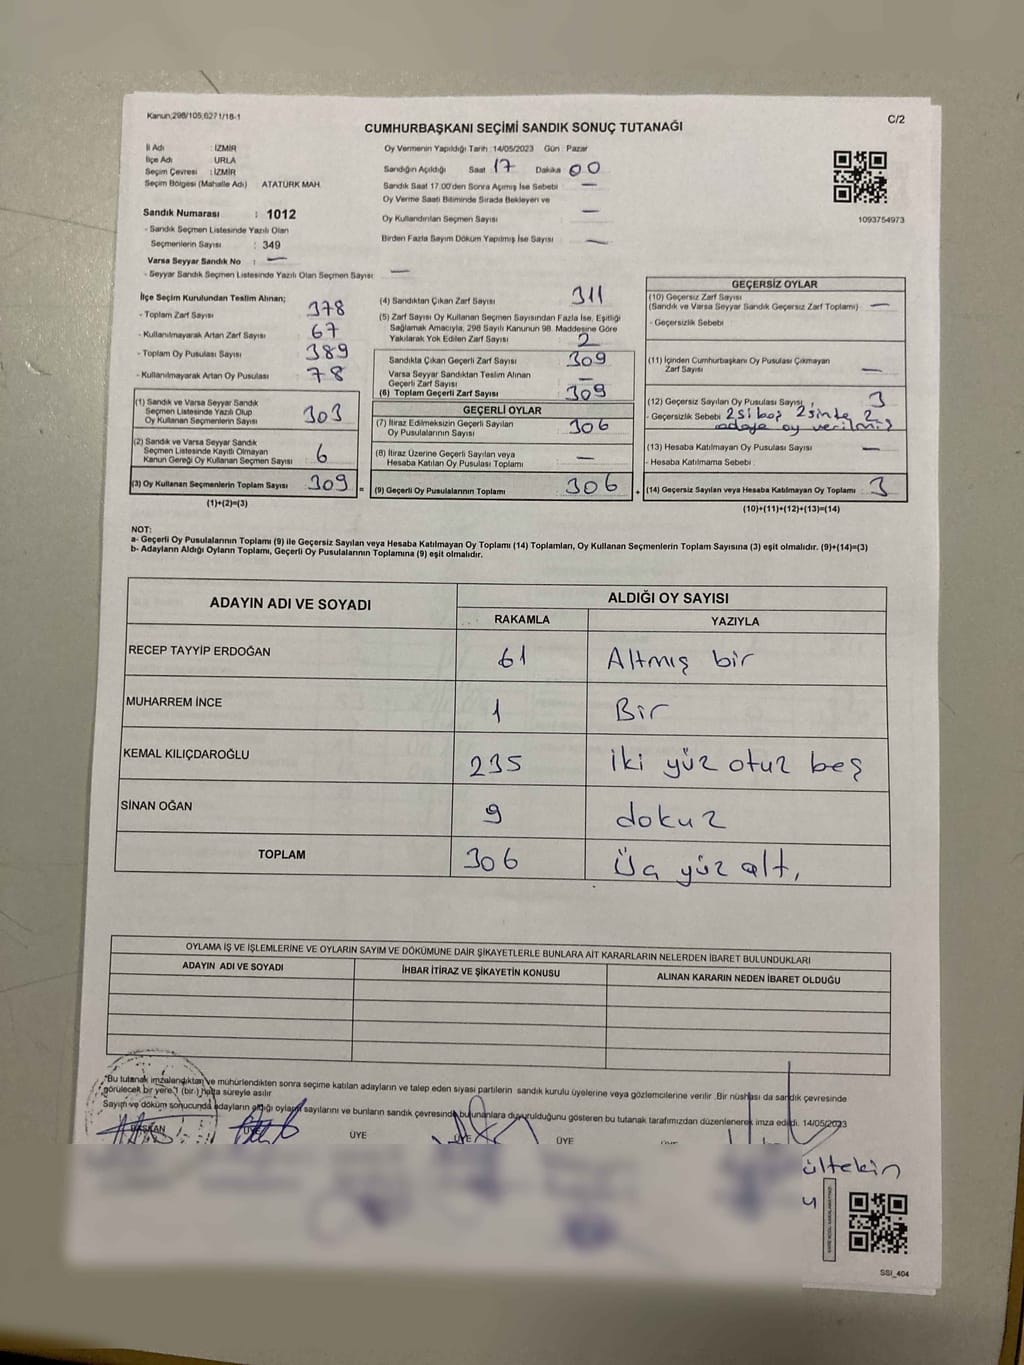 Kanun;298/105,6271/18-1
C/2
CUMHURBAŞKANI SEÇİMİ SANDIK SONUÇ TUTANAĞI
İl Adı : İZMİR
İlçe Adı : URLA
Seçim Çevresi : İZMİR
Seçim Bölgesi (Mahalle Adı) ATATÜRK MAH.
Sandık Numarası : 1012
- Sandık Seçmen Listesinde Yazılı Olan
Seçmenlerin Sayısı : 349
Varsa Seyyar Sandık No : —
- Seyyar Sandık Seçmen Listesinde Yazılı Olan Seçmen Sayısı: —
Oy Vermenin Yapıldığı Tarih :14/05/2023 Gün : Pazar
Sandığın Açıldığı Saat 17 Dakika 00
Sandık Saat 17.00'den Sonra Açımış İse Sebebi —
Oy Verme Saati Bitiminde Sırada Bekleyen ve
Oy Kullandırılan Seçmen Sayısı —
Birden Fazla Sayım Döküm Yapılmış İse Sayısı —
1093754973
İlçe Seçim Kurulundan Teslim Alınan;
- Toplam Zarf Sayısı 378
- Kullanılmayarak Artan Zarf Sayısı 67
- Toplam Oy Pusulası Sayısı 389
- Kullanılmayarak Artan Oy Pusulası 78
(1) Sandık ve Varsa Seyyar Sandık
Seçmen Listesinde Yazılı Olup
Oy Kullanan Seçmenlerin Sayısı 303
(2) Sandık ve Varsa Seyyar Sandık
Seçmen Listesinde Kayıtlı Olmayan
Kanun Gereği Oy Kullanan Seçmen Sayısı 6
(3) Oy Kullanan Seçmenlerin Toplam Sayısı 309 =
(1)+(2)=(3)
(4) Sandıktan Çıkan Zarf Sayısı 311
(5) Zarf Sayısı Oy Kullanan Seçmen Sayısından Fazla İse, Eşitliği
Sağlamak Amacıyla, 298 Sayılı Kanunun 98. Maddesine Göre
Yakılarak Yok Edilen Zarf Sayısı 2
Sandıkta Çıkan Geçerli Zarf Sayısı 309
Varsa Seyyar Sandıktan Teslim Alınan
Geçerli Zarf Sayısı —
(6) Toplam Geçerli Zarf Sayısı 309
GEÇERLİ OYLAR
(7) İtiraz Edilmeksizin Geçerli Sayılan
Oy Pusulalarının Sayısı 306
(8) İtiraz Üzerine Geçerli Sayılan veya
Hesaba Katılan Oy Pusulası Toplamı —
(9) Geçerli Oy Pusulalarının Toplamı 306 +
GEÇERSİZ OYLAR
(10) Geçersiz Zarf Sayısı
(Sandık ve Varsa Seyyar Sandık Geçersiz Zarf Toplamı) —
- Geçersizlik Sebebi
(11) İçinden Cumhurbaşkanı Oy Pusulası Çıkmayan
Zarf Sayısı —
(12) Geçersiz Sayılan Oy Pusulası Sayısı 3
- Geçersizlik Sebebi 2si boş 2sinde 2
adaya oy verilmiş
(13) Hesaba Katılmayan Oy Pusulası Sayısı —
- Hesaba Katılmama Sebebi :
(14) Geçersiz Sayılan veya Hesaba Katılmayan Oy Toplamı 3
(10)+(11)+(12)+(13)=(14)
NOT:
a- Geçerli Oy Pusulalarının Toplamı (9) ile Geçersiz Sayılan veya Hesaba Katılmayan Oy Toplamı (14) Toplamları, Oy Kullanan Seçmenlerin Toplam Sayısına (3) eşit olmalıdır. (9)+(14)=(3)
b- Adayların Aldığı Oyların Toplamı, Geçerli Oy Pusulalarının Toplamına (9) eşit olmalıdır.
ADAYIN ADI VE SOYADI
ALDIĞI OY SAYISI
RAKAMLA YAZIYLA
RECEP TAYYİP ERDOĞAN 61 Altmış bir
MUHARREM İNCE 1 Bir
KEMAL KILIÇDAROĞLU 235 iki yüz otuz beş
SİNAN OĞAN 9 dokuz
TOPLAM 306 Üç yüz altı
OYLAMA İŞ VE İŞLEMLERİNE VE OYLARIN SAYIM VE DÖKÜMÜNE DAİR ŞİKAYETLERLE BUNLARA AİT KARARLARIN NELERDEN İBARET BULUNDUKLARI
ADAYIN ADI VE SOYADI İHBAR İTİRAZ VE ŞİKAYETİN KONUSU ALINAN KARARIN NEDEN İBARET OLDUĞU
"Bu tutanak imzalandıktan ve mühürlendikten sonra seçime katılan adayların ve talep eden siyasi partilerin sandık kurulu üyelerine veya gözlemcilerine verilir .Bir nüshası da sandık çevresinde
görülecek bir yere 1 (bir ) hafta süreyle asılır
Sayım ve döküm sonucunda adayların aldığı oyların sayılarını ve bunların sandık çevresinde bulunanlara duyurulduğunu gösteren bu tutanak tarafımızdan düzenlenerek imza edildi. 14/05/2023
BAŞKAN ÜYE ÜYE ÜYE ÜYE
ültekin
SSI_404